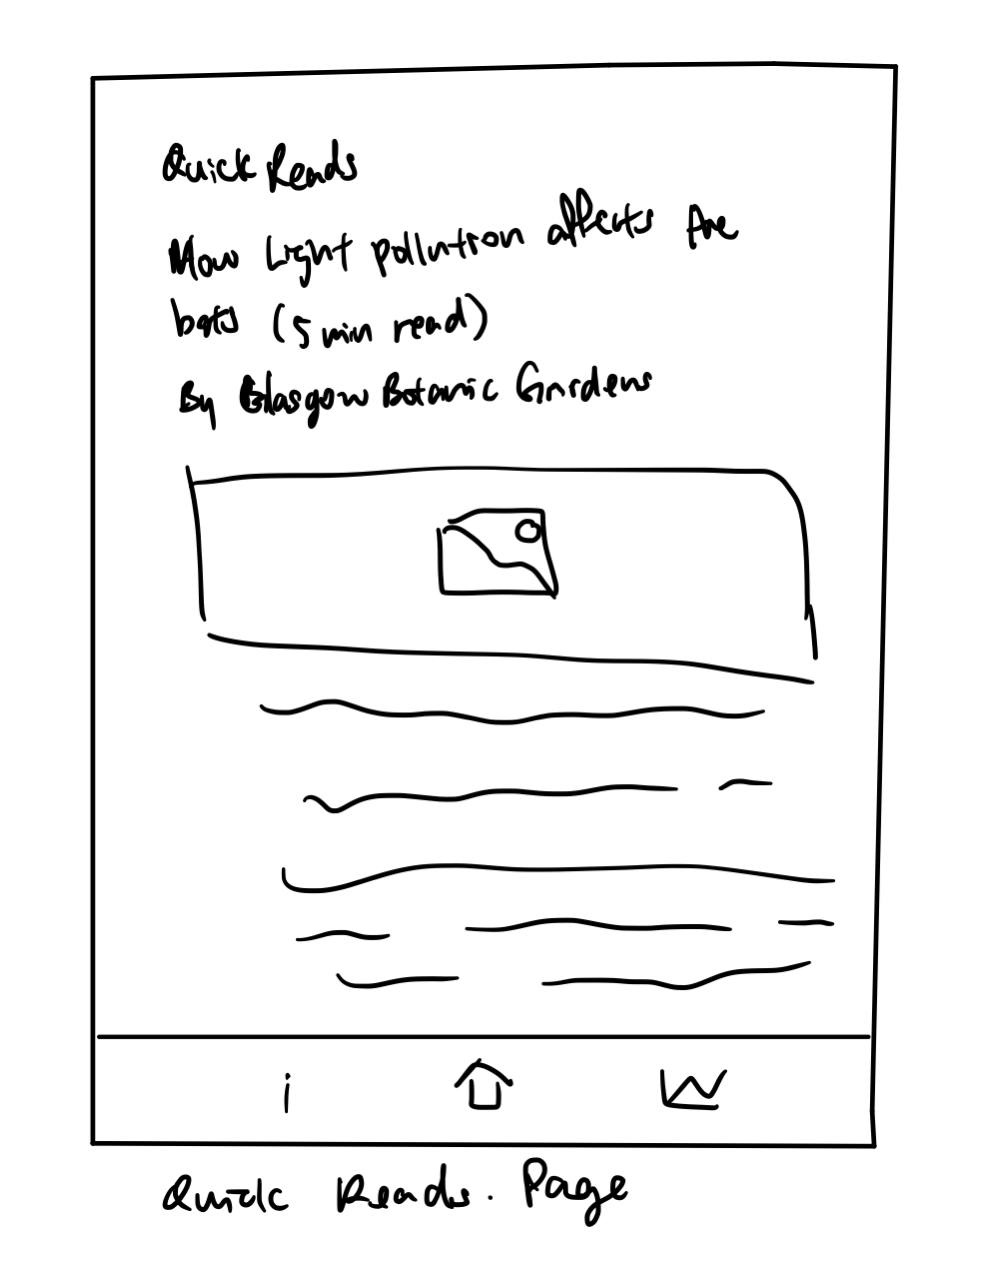 Quick Reads
How Light pollution affects the
bats (5 min read)
By Glasgow Botanic Gardens
i
Quick Reads. Page